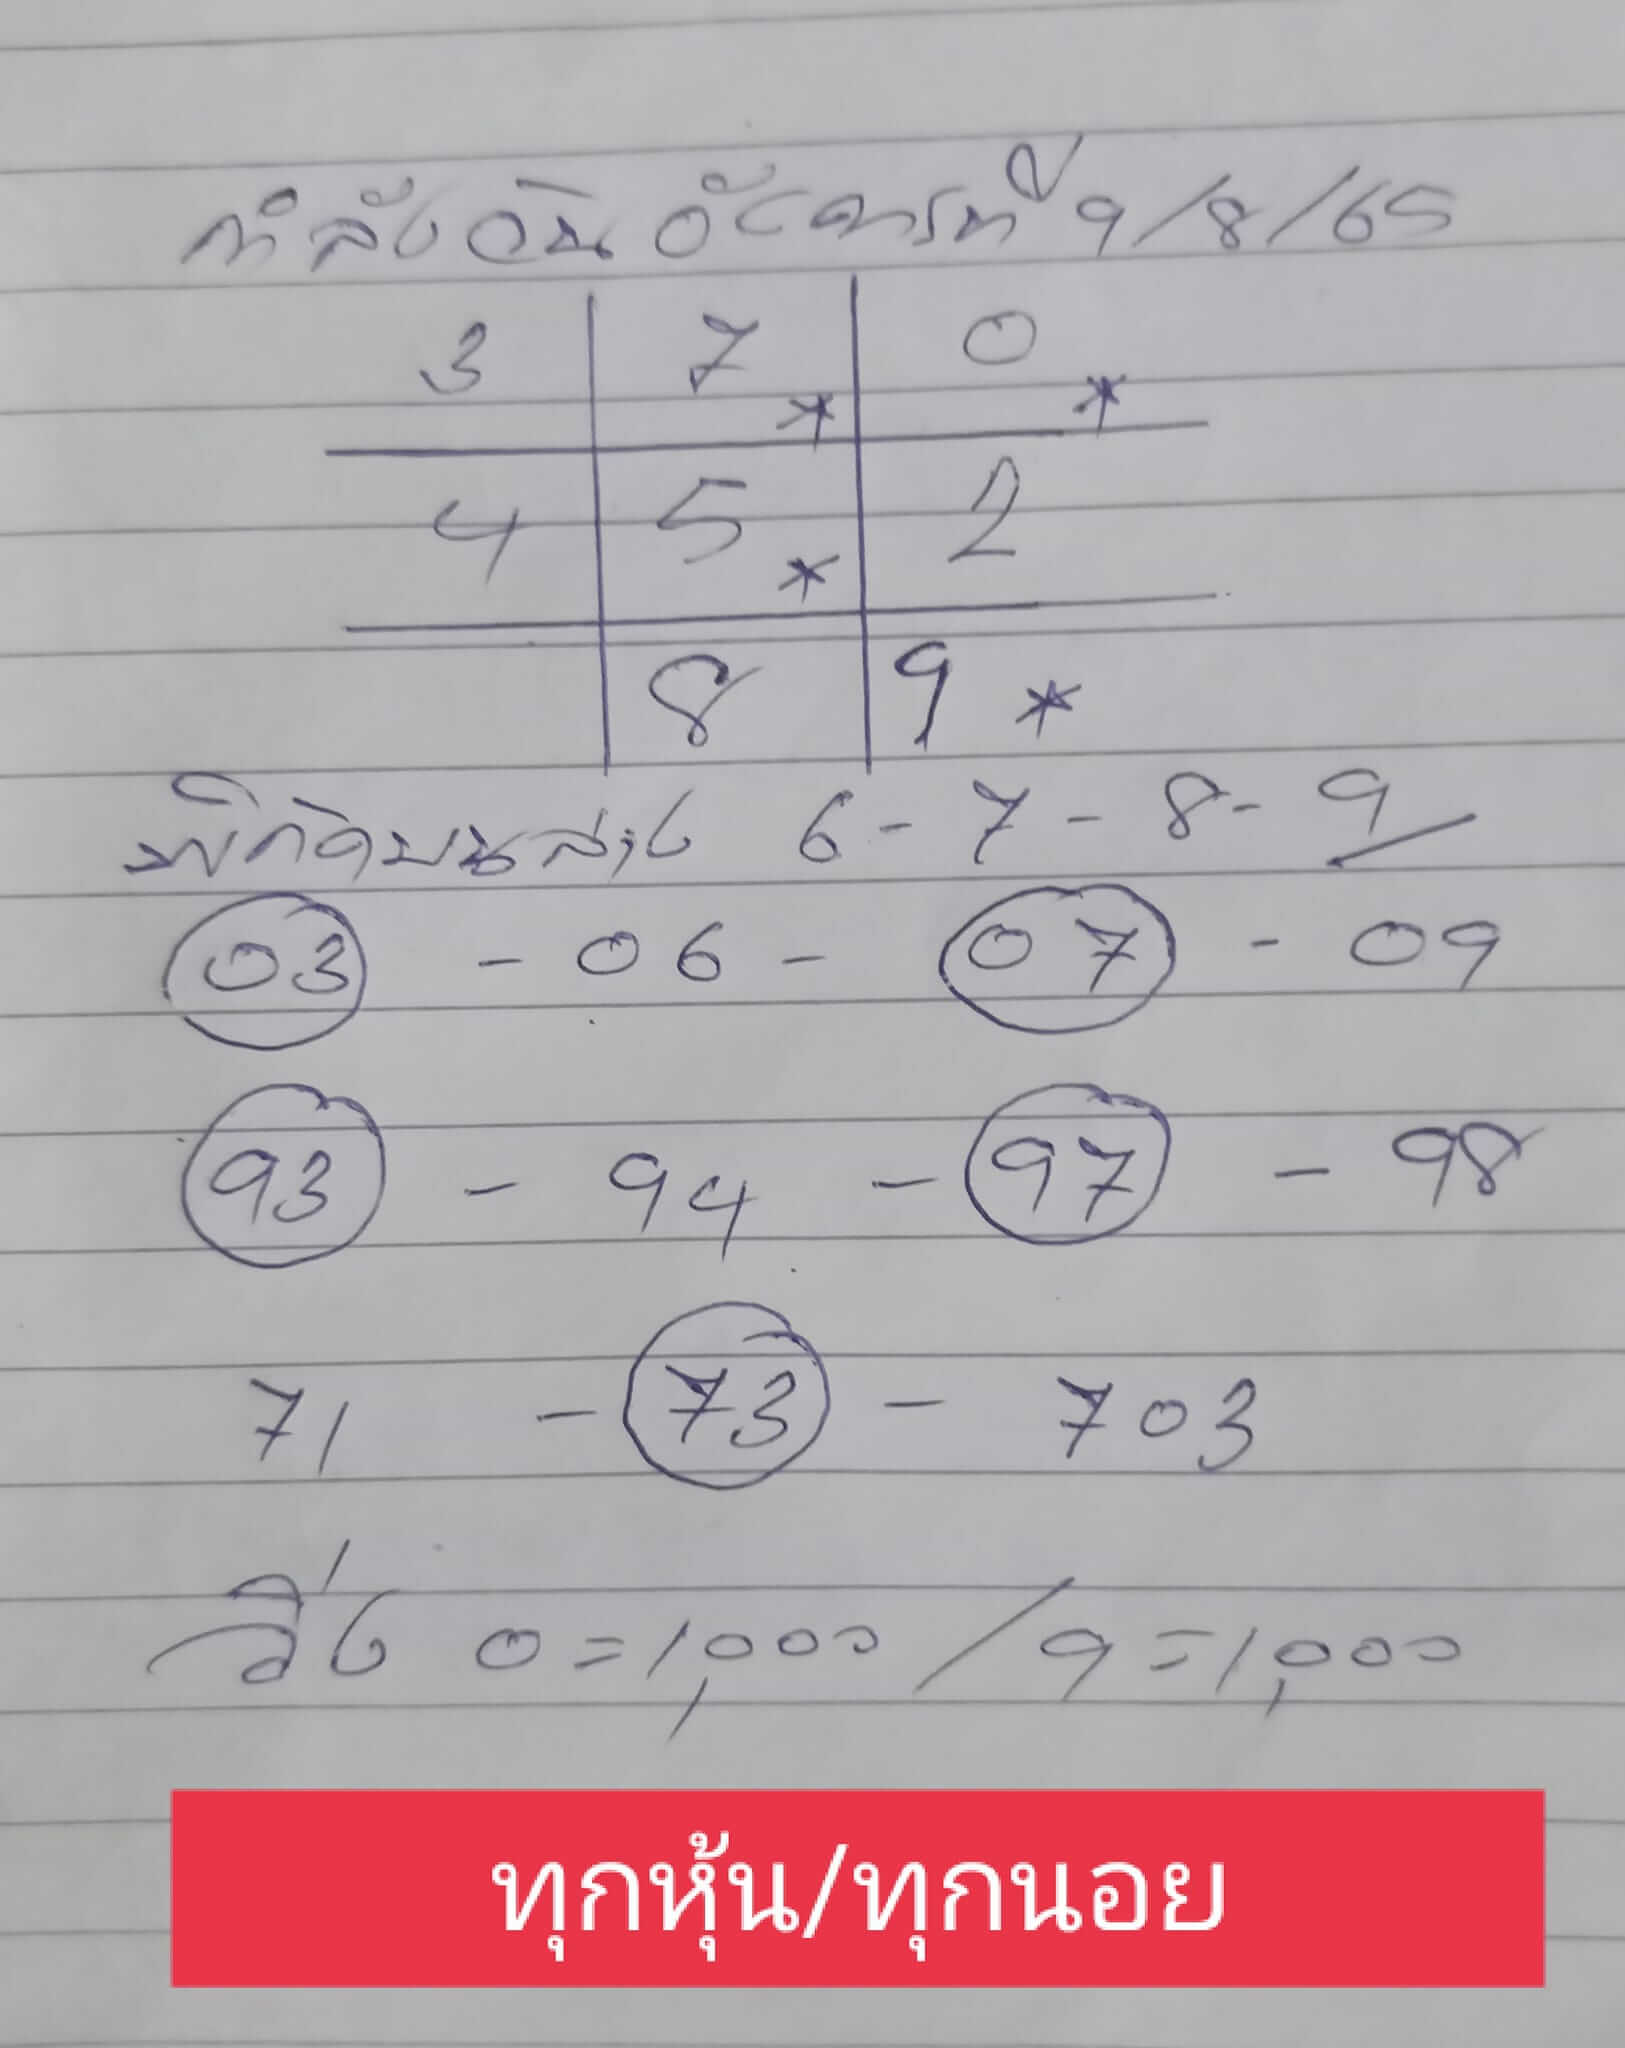 กำลังวันอังคารที่ 9/8/65
3 7 0
* *
4 5 2
*
8 9 *
พิกัดบนล่าง 6-7-8-9
03 - 06 - 07 - 09
93 - 94 - 97 - 98
71 - 73 - 703
วิ่ง 0=1,000 / 9=1,000
ทุกหุ้น/ทุกนอย